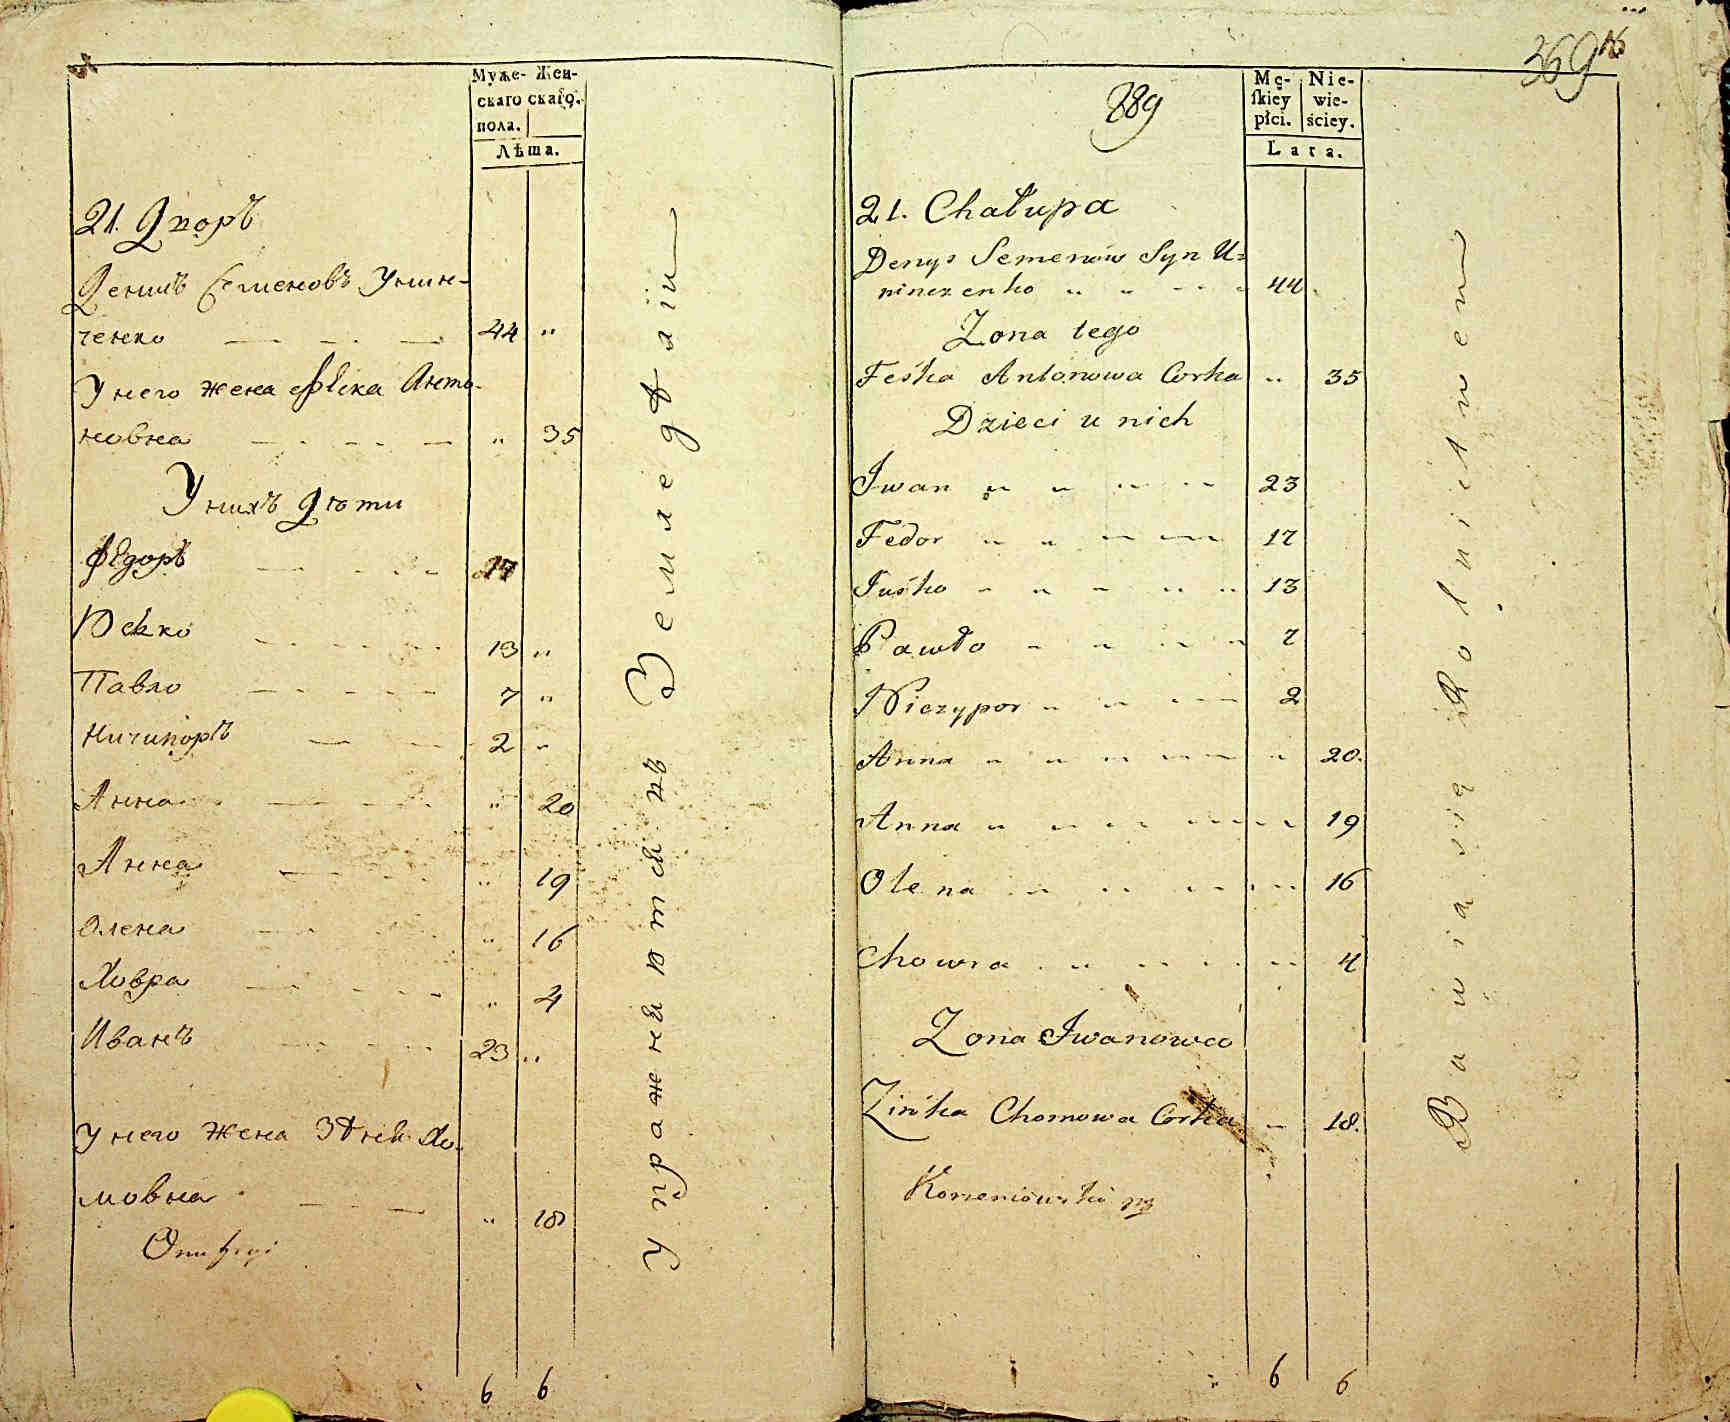 Муже- Жен-
скаго скаго.
пола.
Лѣта.
21. Дворъ
Денисъ Семеновъ Унин-
ченко 44 "
У него жена Феска Анто-
новна " 35
У нихъ дѣти
Федоръ 17
Юско 13 "
Павло 7 "
Ничипоръ 2 "
Анна " 20
Анна " 19
Олена " 16
Ховра " 4
Иванъ 23 "
У него жена Зѣнка Хо-
мовна " 18
6 6
Упражняются въ Земледѣліи
369
289
Mę- Nie-
skiey wie-
płci. ściey.
Lata.
21. Chałupa
Denys Semenow Syn U=
ninczenko 44
Zona tego
Feśka Antonowa Corka " 35
Dzieci u nich
Iwan 23
Fedor 17
Juśko 13
Pawło 7
Niczypor 2
Anna 20.
Anna 19
Olena 16
Chowra 4
Zona Iwanowa
Zinka Chomowa Corka 18.
6 6
Bawia się Rolnictwem